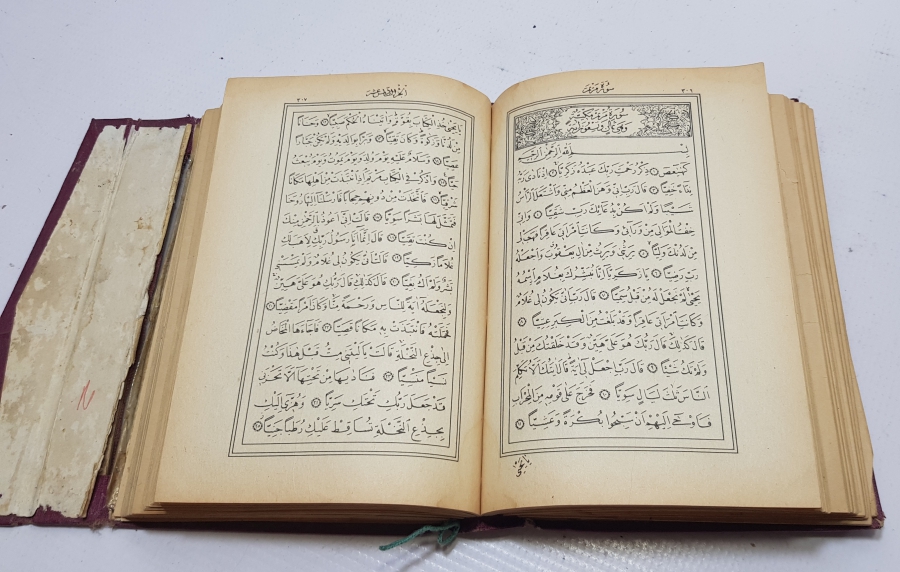 سورة مريم ٣٠٦
سورة مريم مكية
وهي ثمان وتسعون آية
بسم الله الرحمن الرحيم
كهيعص ﴿١﴾ ذكر رحمت ربك عبده زكريا ﴿٢﴾ اذ نادى ربه
نداء خفيا ﴿٣﴾ قال رب اني وهن العظم مني واشتعل الرأس
شيبا ولم اكن بدعائك رب شقيا ﴿٤﴾ واني
خفت الموالي من ورائي وكانت امرأتي عاقرا فهب لي
من لدنك وليا ﴿٥﴾ يرثني ويرث من ال يعقوب واجعله
رب رضيا ﴿٦﴾ يا زكريا انا نبشرك بغلام اسمه
يحيى لم نجعل له من قبل سميا ﴿٧﴾ قال رب انى يكون لي غلام
وكانت امرأتي عاقرا وقد بلغت من الكبر عتيا ﴿٨﴾
قال كذلك قال ربك هو علي هين وقد خلقتك من قبل
ولم تك شيئا ﴿٩﴾ قال رب اجعل لي اية قال ايتك الا تكلم
الناس ثلث ليال سويا ﴿١٠﴾ فخرج على قومه من المحراب
فاوحى اليهم ان سبحوا بكرة وعشيا ﴿١١﴾
٣٠٧
يا يحيى خذ الكتاب بقوة واتيناه الحكم صبيا ﴿١٢﴾ وحنانا
من لدنا وزكوة وكان تقيا ﴿١٣﴾ وبرا بوالديه ولم يكن جبارا
عصيا ﴿١٤﴾ وسلام عليه يوم ولد ويوم يموت ويوم يبعث
حيا ﴿١٥﴾ واذكر في الكتاب مريم اذ انتبذت من اهلها مكانا
شرقيا ﴿١٦﴾ فاتخذت من دونهم حجابا فارسلنا اليها روحنا
فتمثل لها بشرا سويا ﴿١٧﴾ قالت اني اعوذ بالرحمن منك
ان كنت تقيا ﴿١٨﴾ قال انما انا رسول ربك لاهب لك
غلاما زكيا ﴿١٩﴾ قالت انى يكون لي غلام ولم يمسسني
بشر ولم اك بغيا ﴿٢٠﴾ قال كذلك قال ربك هو علي هين
ولنجعله اية للناس ورحمة منا وكان امرا مقضيا ﴿٢١﴾
فحملته فانتبذت به مكانا قصيا ﴿٢٢﴾ فاجاءها المخاض
الى جذع النخلة قالت يا ليتني مت قبل هذا وكنت
نسيا منسيا ﴿٢٣﴾ فناديها من تحتها الا تحزني
قد جعل ربك تحتك سريا ﴿٢٤﴾ وهزي اليك
بجذع النخلة تساقط عليك رطبا جنيا ﴿٢٥﴾